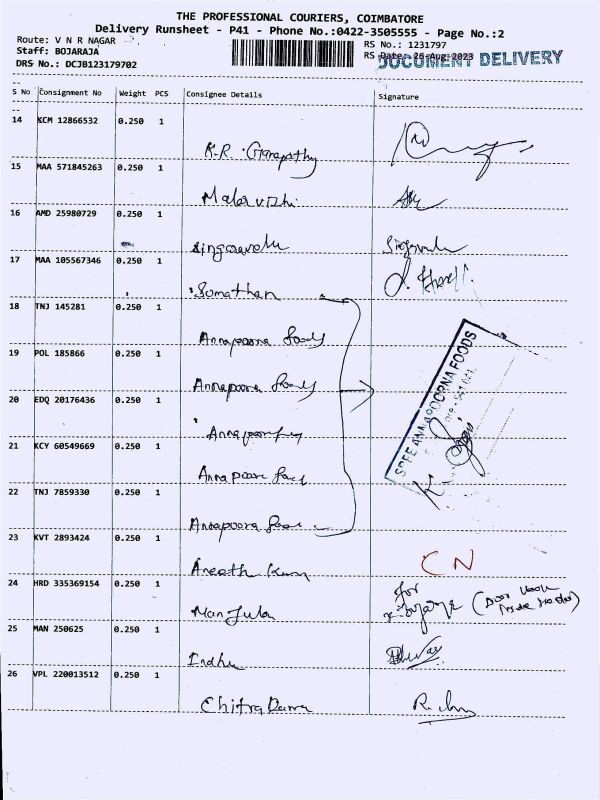 THE PROFESSIONAL COURIERS, COIMBATORE
Delivery Runsheet - P41 - Phone No.:0422-3505555 - Page No.:2
Route: V N R NAGAR
RS No.: 1231797
Staff: BOJARAJA
RS Date: 26-Aug-2023
DOCUMENT DELIVERY
DRS No.: DCJB123179702
S No Consignment No Weight PCS Consignee Details Signature
14 KCM 12866532 0.250 1
K.R. Ganapathy
15 MAA 571845263 0.250 1
Malarvizhi
16 AMD 25980729 0.250 1
Singaravelu
17 MAA 105567346 0.250 1
Sumathan
18 TNJ 145281 0.250 1
Annapoorna Foods
19 POL 185866 0.250 1
Annapoorna Foods
20 EDQ 20176436 0.250 1
21 KCY 60549669 0.250 1
Annapoorna
22 TNJ 7859330 0.250 1
Annapoorna
SREE ANNAPOORNA FOODS
23 KVT 2893424 0.250 1
CN
24 HRD 335369154 0.250 1
Manjula
for
25 MAN 250625 0.250 1
Indhu
26 VPL 220013512 0.250 1
Chitra